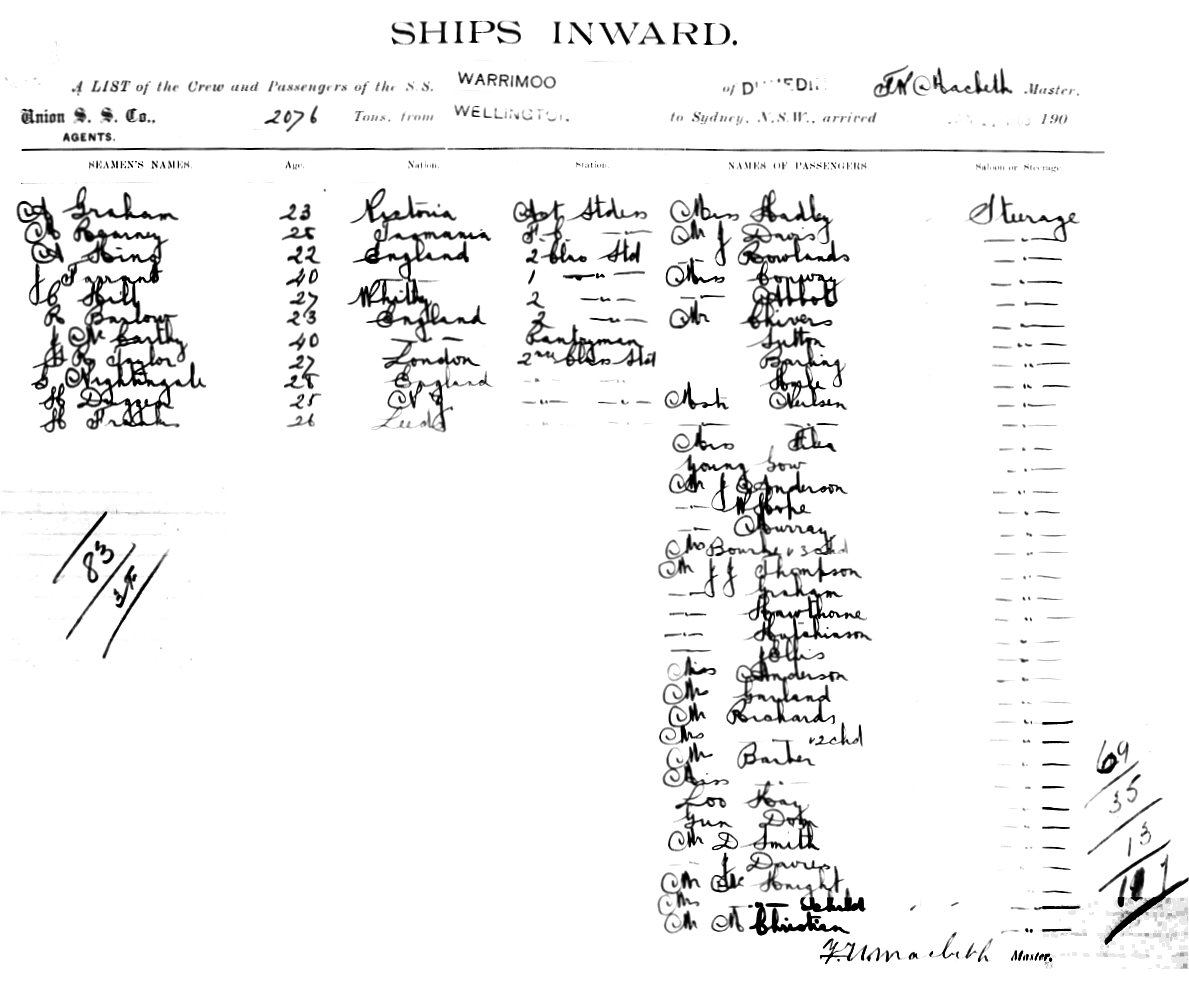 SHIPS INWARD.
A LIST of the Crew and Passengers of the S.S. WARRIMOO of Macbeth Master,
Union S. S. Co., 2076 Tons, from WELLINGTON. to Sydney, N.S.W., arrived 190
AGENTS.
SEAMEN'S NAMES. Age. Nation. Station. NAMES OF PASSENGERS Saloon or Steerage
A Graham 23 Victoria Ast Stdess Miss Hadley Sturage
Kearney Tasmania F. C. —"— Mr J Davis —"—
A King 22 England 2 Class Std Rowlands —"—
J Tarrant 40 —"— 1 —"— Miss Conway —"—
C Hill 27 Whitby 2 —"— —"— Abbott —"—
R Barlow 23 England 2 —"— Mr Chivers —"—
J McCarthy 40 —"— Pantryman Sutton —"—
H R Taylor 27 London 2nd Class Std Barling —"—
Nightingale England —"— —"— —"—
H 25 N Z —"— —"— Neilsen —"—
H Franks 26 Leeds —"— —"— —"— —"—
—"—
Young Gow —"—
Mr J Anderson —"—
—"— W Hope —"—
—"— Murray —"—
Mrs Bourke & 3 chd —"—
Mr J J Thompson —"—
—"— Graham —"—
—"— Hawthorne —"—
—"— Hutchinson —"—
—"— J Ellis —"—
Miss Anderson —"—
Mr Garland —"—
Mr Richards —"—
Mrs —"— & 2 chd —"—
Mr Barker —"—
Miss —"— —"—
Loo Hay —"—
Gun —"—
Mr D Smith —"—
—"— J Davies —"—
Mr Mc Knight —"—
Mrs —"— & child —"—
Mr M Christian —"—
83
69
35
13
117
Macbeth Master.